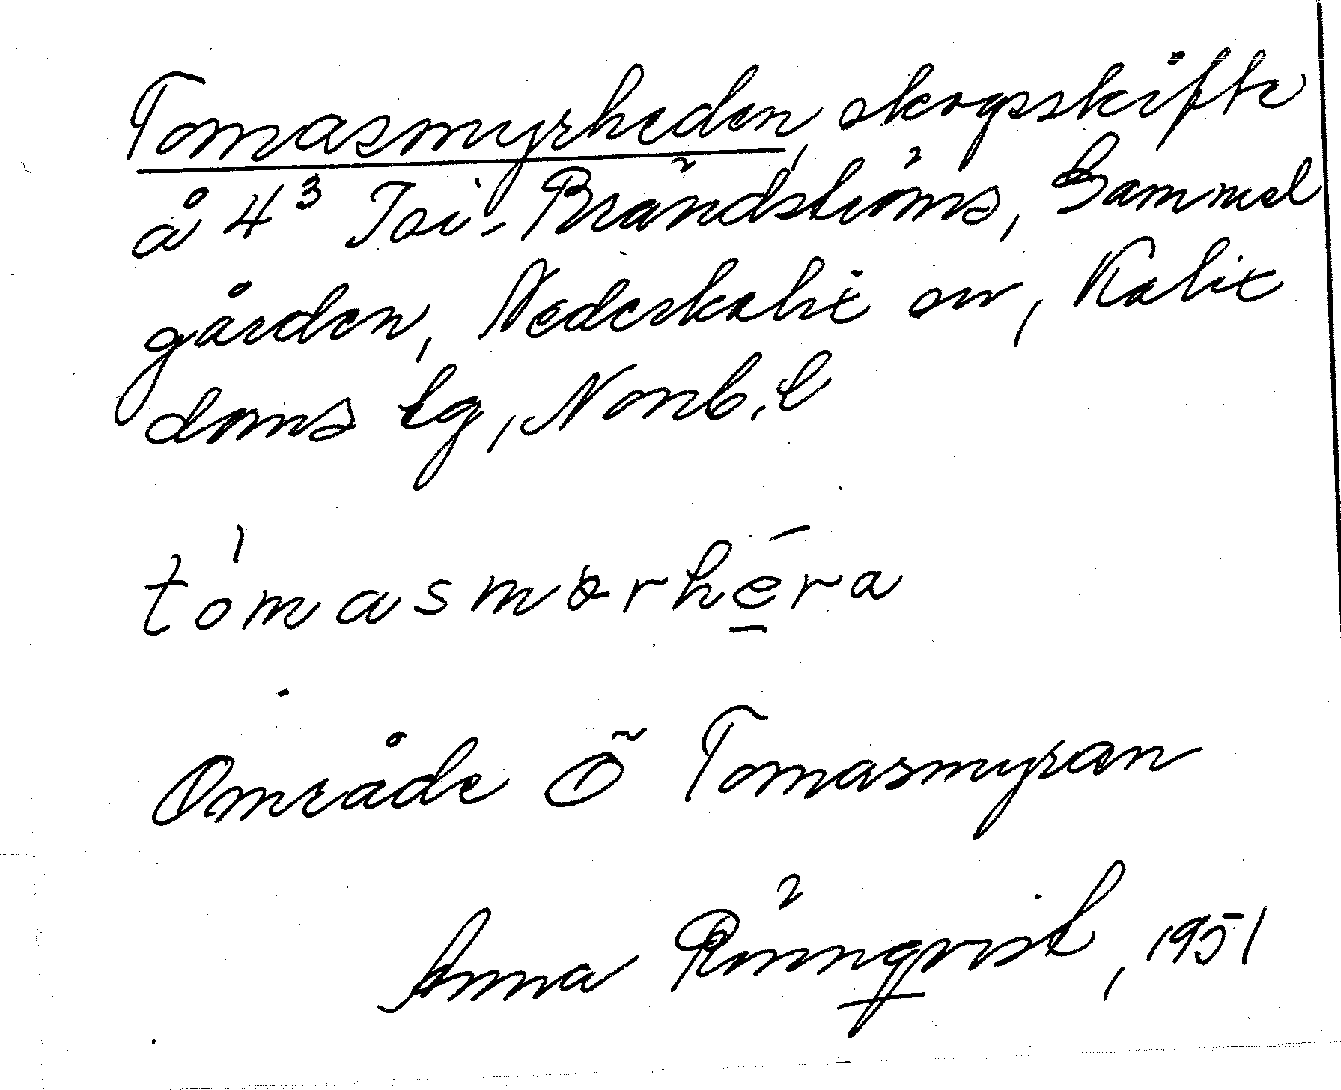 Tomasmyrheden, skogsskifte
å 4³ Isi-Brändströms, Gammel
gården, Nederkalix sn, Kalix
doms lg, Nonb. l
tómasmørhéra
Område Ö Tomasmyran
Anna Rönnqvist, 1951